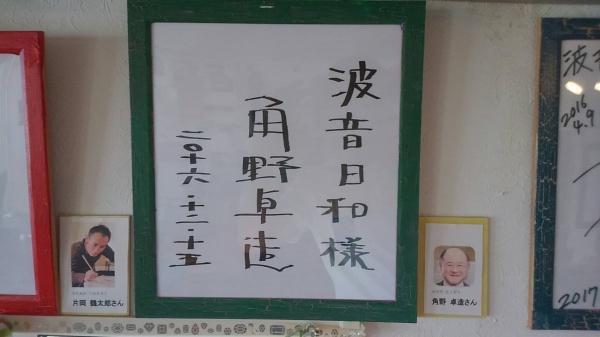 波音日和様
角野卓造
二〇十六・十二・十五
片岡 鶴太郎さん
角野 卓造さん
波
2016
4.9
2017